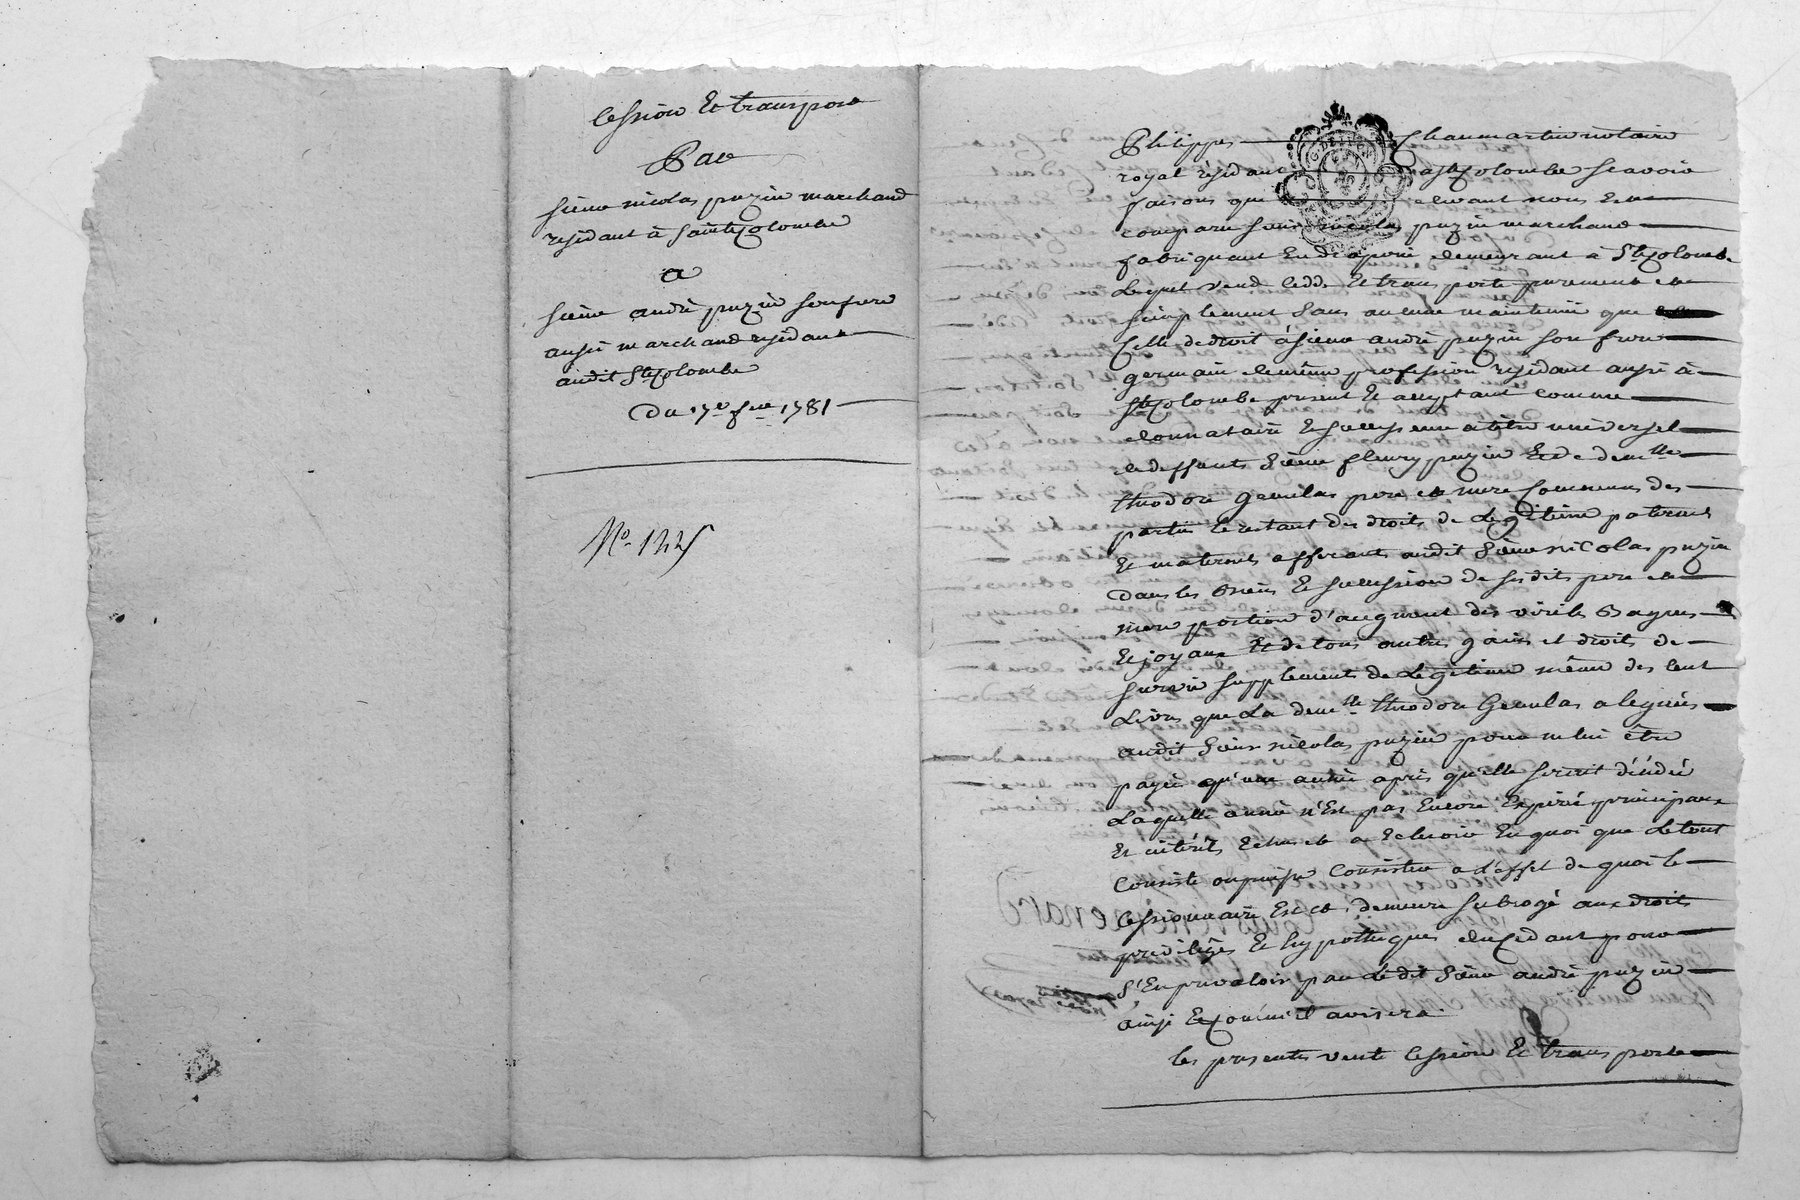 Cession Et transport
Par
sieur nicolas puzin marchand
residant à Sainte Colombe
a
sieur andré puzin son frere
aussi marchand residant
audit Ste Colombe
Du 17e 1781
No. 1225
Philippes Chaumartin notaire
royal residant a Ste Colombe scavoir
faisons que devant nous Est
comparu sieur nicolas puzin marchand
fabriquant En draperie demeurant à Ste Colombe
Lequel vend cedde Et transporte purement et
simplement sans aucune maintenüe que
Celle de droit à sieur andré puzin son frere
germain de même profession residant aussi à
Ste Colombe present Et acceptant comme
donnataire Et successeur a titre universel
de deffunts Sieur fleury puzin Et de demlle
theodore Genulas pere et mere communs des
partie le restant des droits de Legitime paternels
Et maternels afferants audit Sieur nicolas puzin
dans les Biens Et succession de sesdits pere et
mere portion d'augment des virils Bagues
Et joyaux Et de tous autres gains et droits de
survie supplement de Legitime même des Cent
Livres que La demlle theodore Genulas a legués
audit Sieur nicolas puzin pour ne lui être
payés qu'une année après qu'elle seroit décédée
Laquelle année n'Est pas Encore Expirée principaux
Et intérêts Echus et a Echeoir En quoi que Le tout
Consiste ou puisse Consister a l'effet de quoi le
Cessionnaire Est et demeure subrogé aux droits
privilèges Et hypotheques du Cedant pour
S'En prevaloir par Ledit Sieur andré puzin
ainsi Et comme il avisera.
Les presentes vente Cession Et transport